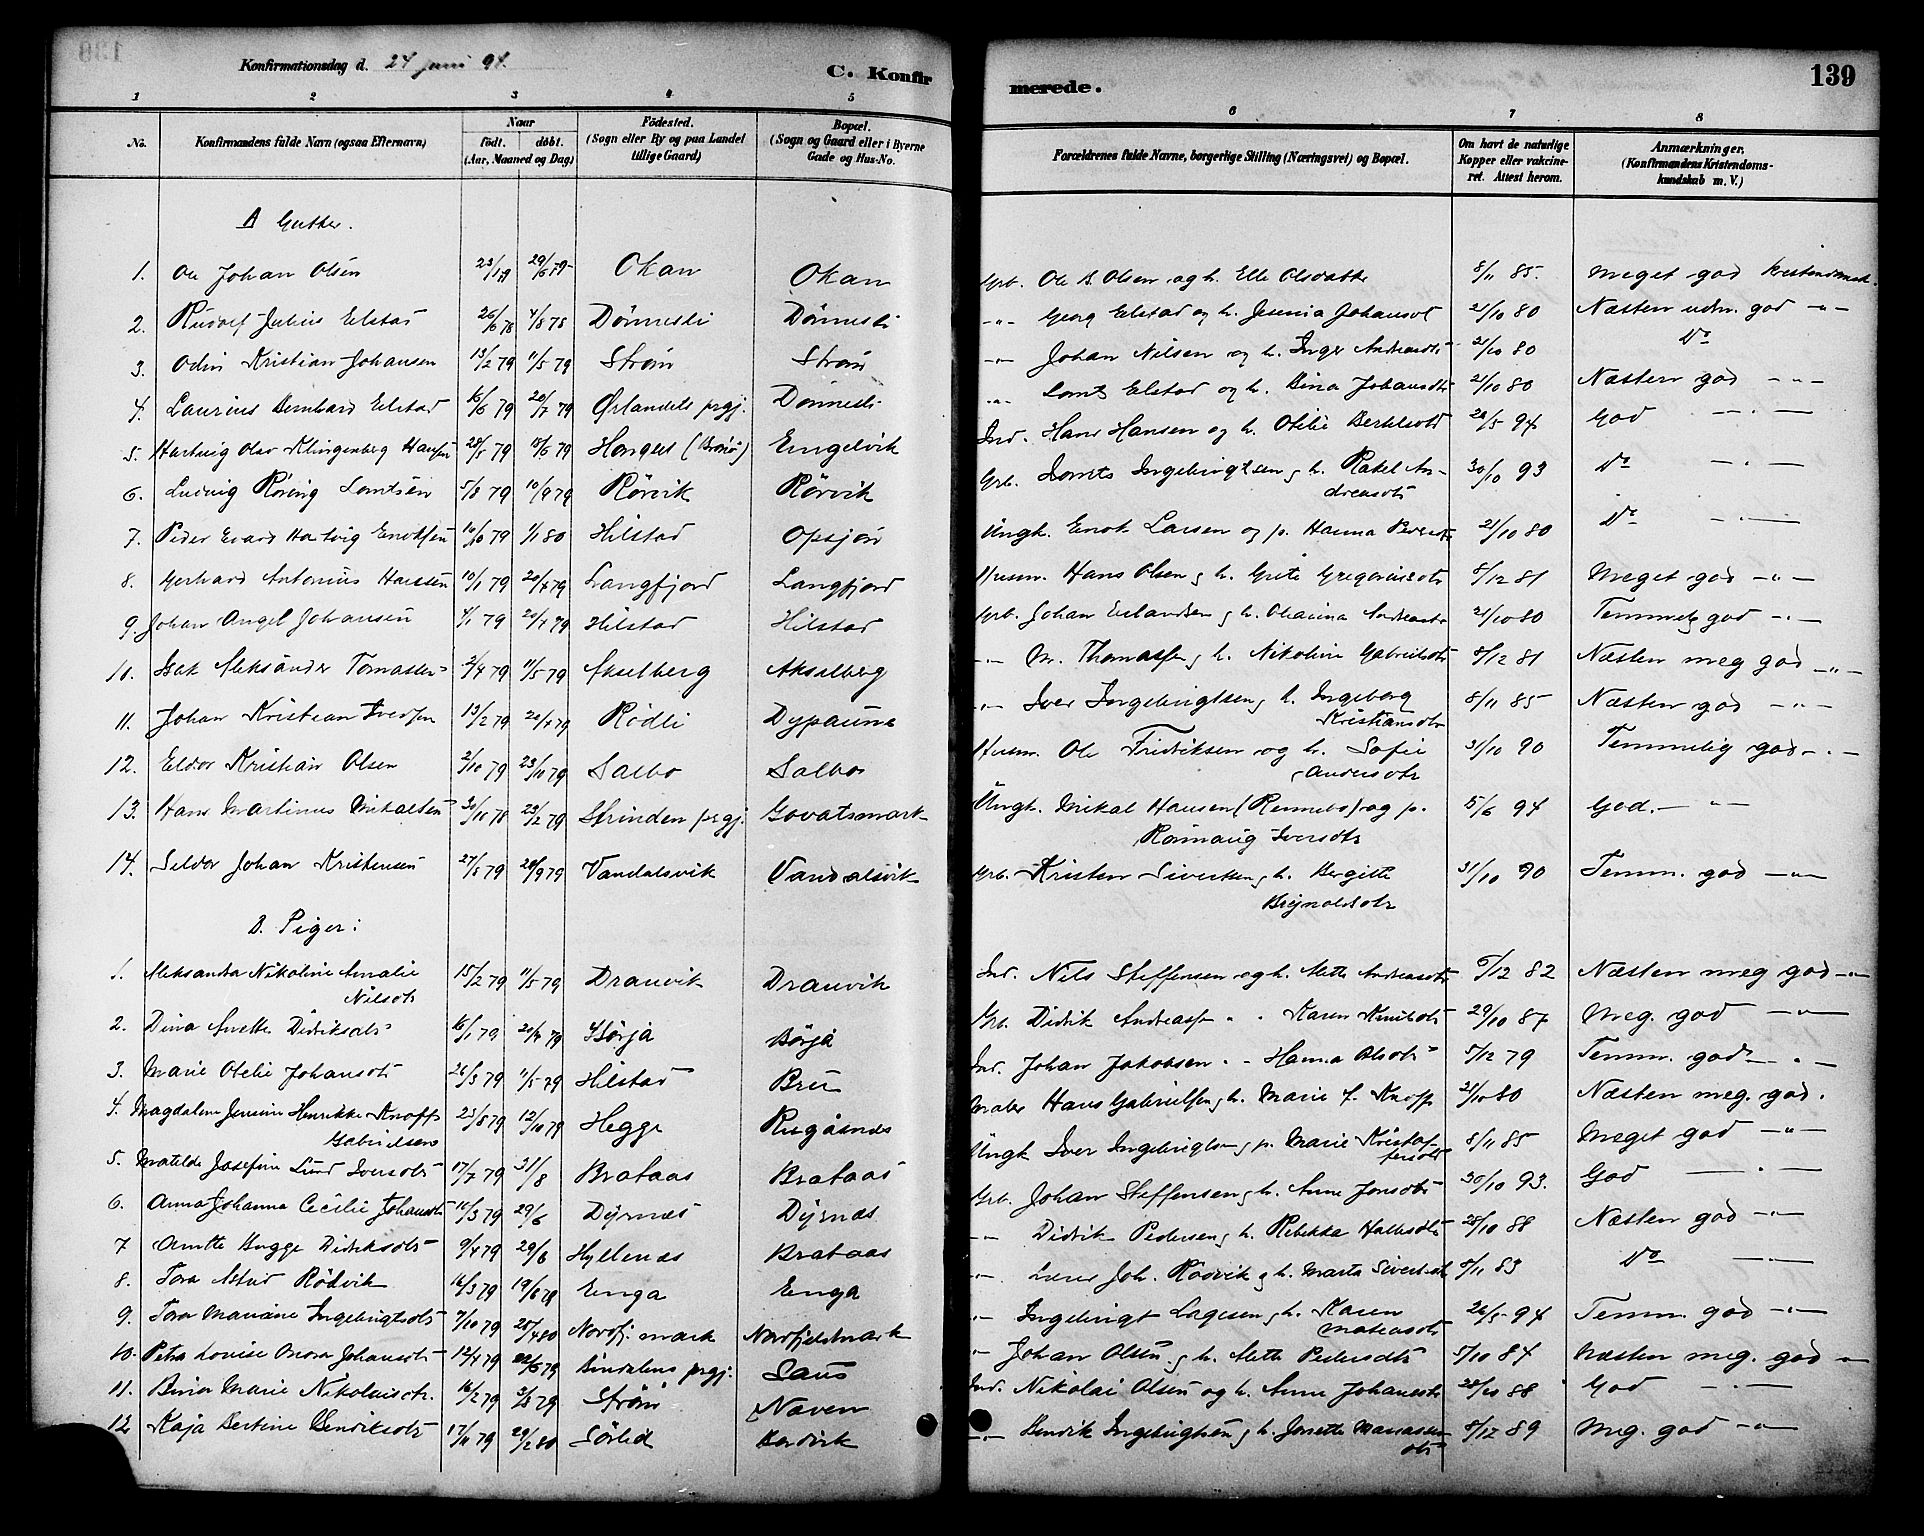 Konfirmationsdag d. 24 juni 94.
C. Konfir
merede.
139
1 2 3 4 5 6 7 8
No.
Konfirmandens fulde Navn (ogsaa Efternavn)
Naar
født. døbt.
(Aar, Maaned og Dag)
Fødested.
(Sogn eller By og paa Landet
tillige Gaard)
Bopæl.
(Sogn og Gaard eller i Byerne
Gade og Hus-No.
Forældrenes fulde Navne, borgerlige Stilling (Næringsvei) og Bopæl.
Om havt de naturlige
Kopper eller vakcine-
ret. Attest herom.
Anmærkninger.
(Konfirmandens Kristendoms-
kundskab m. V.)
A Gutter.
1. Ole Johan Olsen 23/1 79 29/6 79 Okan Okan Grb. Ole B. Olsen og h. Elle Olsdatter 8/11 85. Meget god Kristendomsk.
2. Rudolf Julius Elstad 26/6 78 4/8 78 Dønnesli Dønnesli -"- Georg Elstad og h. Jesenia Johansdt 21/10 80 Næsten udm. god -"-
3. Odin Kristian Johansen 13/2 79 11/5 79 Strøm Strøm -"- Johan Nilsen og h. Inger Andreasdt 21/10 80 Do
4. Laurius Bernhard Elstad 16/6 79 20/7 79 Ørlandets prgj. Dønnesli -"- Lornts Elstad og h. Bina Johansdtr 21/10 80 Næsten god -"-
5. Hartvig Olav Klingenberg Hansen 28/5 79 15/6 79 Horgen (Brønø) Engelvik Ind. Hans Hansen og h. Otelie Bertelsdt 29/5 94 God -"-
6. Ludvig Røring Lorntsen 5/8 79 10/9 79 Rørvik Rørvik Grb. Lornts Ingebrigtsen, h. Rakel An-
dreasdtr 30/10 93 Do -"-
7. Peder Evard Hartvig Enoksen 10/10 79 1/1 80 Hilstad Opsjøn Ungk. Enok Larsen og p. Hanna Pedersdtr 21/10 80 Do -"-
8. Gerhard Antonius Hansen 10/1 79 20/4 79 Langfjord Langfjord Husm. Hans Olsen, h. Grete Gregoriusdtr 8/12 81 Meget god -"-
9. Johan Angel Johansen 4/1 79 20/4 79 Hilstad Hilstad Grb. Johan Erlandsen, h. Olianna Andreasdtr 21/10 80 Temmelig god -"-
10. Isak Aleksander Tomassen 2/4 79 11/5 79 Akselberg Akselberg -"- M. Thomassen, h. Nikoline Gabrielsdtr 8/12 81 Næsten meg god -"-
11. Johan Kristian Iversen 13/2 79 20/4 79 Rødli Dypaune -"- Iver Ingebrigtsen, h. Ingeborg
Kristiansdtr 8/11 85 Næsten god -"-
12. Eldor Kristian Olsen 2/10 79 23/11 79 Salbo Salbo Husm. Ole Fredriksen og h. Sofie
Andersdtr 31/10 90 Temmelig god -"-
13. Hans Martinus Mikalsen 30/11 78 23/2 79 Strinden prgj. Govatsmark Ungk. Mikal Hansen (Rennebo) og p.
Rønnaug Iversdtr 5/6 94 God. -"-
14. Seldor Johan Kristensen 27/5 79 28/9 79 Vandalsvik Vandalsvik Grb. Kristen Sivertsen, h. Bergitte
Brynoldsdtr 31/10 90 Temm. god -"-
B. Piger:
1. Aleksandra Nikoline Amalie
Nilsdtr 15/2 79 11/5 79 Drauvik Drauvik Ind. Nils Steffensen og h. Mette Andreasdtr 6/12 82 Næsten meg god -"-
2. Dina Anette Didriksdtr 16/1 79 20/4 79 Børja Børja Grb. Didrik Andreass. " " Karen Knutsdtr 29/10 87 Meg. god -"-
3. Marie Otelie Johansdtr 26/3 79 11/5 79 Hilstad Bru Ind. Johan Jakobsen " " Hanna Olsdtr 5/12 79 Temm. god -"-
4. Magdalene Jensine Henrikke Knoff
Gabrielsen 23/8 79 12/10 79 Hegge Rugåsnes Maler Hans Gabrielsen, h. Marie f. Knoff 21/10 80 Næsten meg. god.
5. Matilde Josefine Lund Iversdtr 17/7 79 31/8 Brataas Brataas Ungk Iver Ingebrigtsen, p. Marie Kristof-
fersdtr 8/11 85 Meget god -"-
6. Anna Johanna Cecilie Johansdtr 10/3 79 29/6 Dyrnæs Dyrnæs Grb. Johan Steffensen, h. Anne Jonsdtr 30/10 93. God -"-
7 Anette Bugge Didriksdtr 9/4 79 29/6 Hyllenæs Brataas -"- Didrik Pedersen, h. Rebekka Hallesdtr 28/10 88 Næsten god -"-
8. Tora Astrid Rødvik 16/3 79 19/6 79 Enga Enga -"- Lærer Joh. Rødvik, h. Marta Sivertsdtr 8/11 83 Do -"-
9. Tora Mariane Ingebrigtsdtr 7/10 79 25/4 80 Nordfj. mark Nordfjeldmark -"- Ingebrigt Lagesen, h. Karen
Mateasdtr 26/5 94 Temm. god -"-
10. Petra Louise Onora Johansdtr 12/4 79 22/6 79 Bindalens prgj. Saus -"- Johan Olsen, h. Mette Pedersdtr 5/10 84 Næsten meg. god -"-
11. Bina Marie Nikolaisdtr. 16/2 79 3/8 79 Strøm Næven Ind. Nikolai Olsen og h. Anne Johansdtr 28/10 88 God -"-
12 Kaja Bertine Henriksdtr 17/11 79 29/2 80 Sørlid Bordvik -"- Henrik Ingebrigtsen, h. Jonette Manasses
dtr 8/12 89 Meg. god -"-